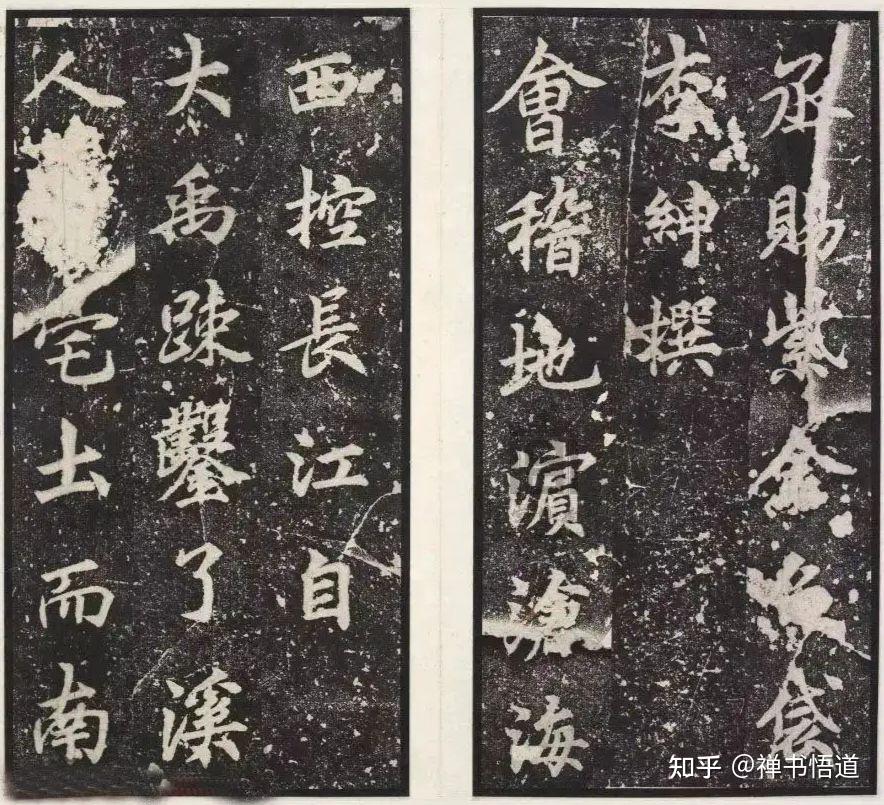 丞賜紫金袋
李紳撰
會稽地濵滄海
西控長江自
大禹踈鑿了溪
人宅土而南
知乎 @禅书悟道